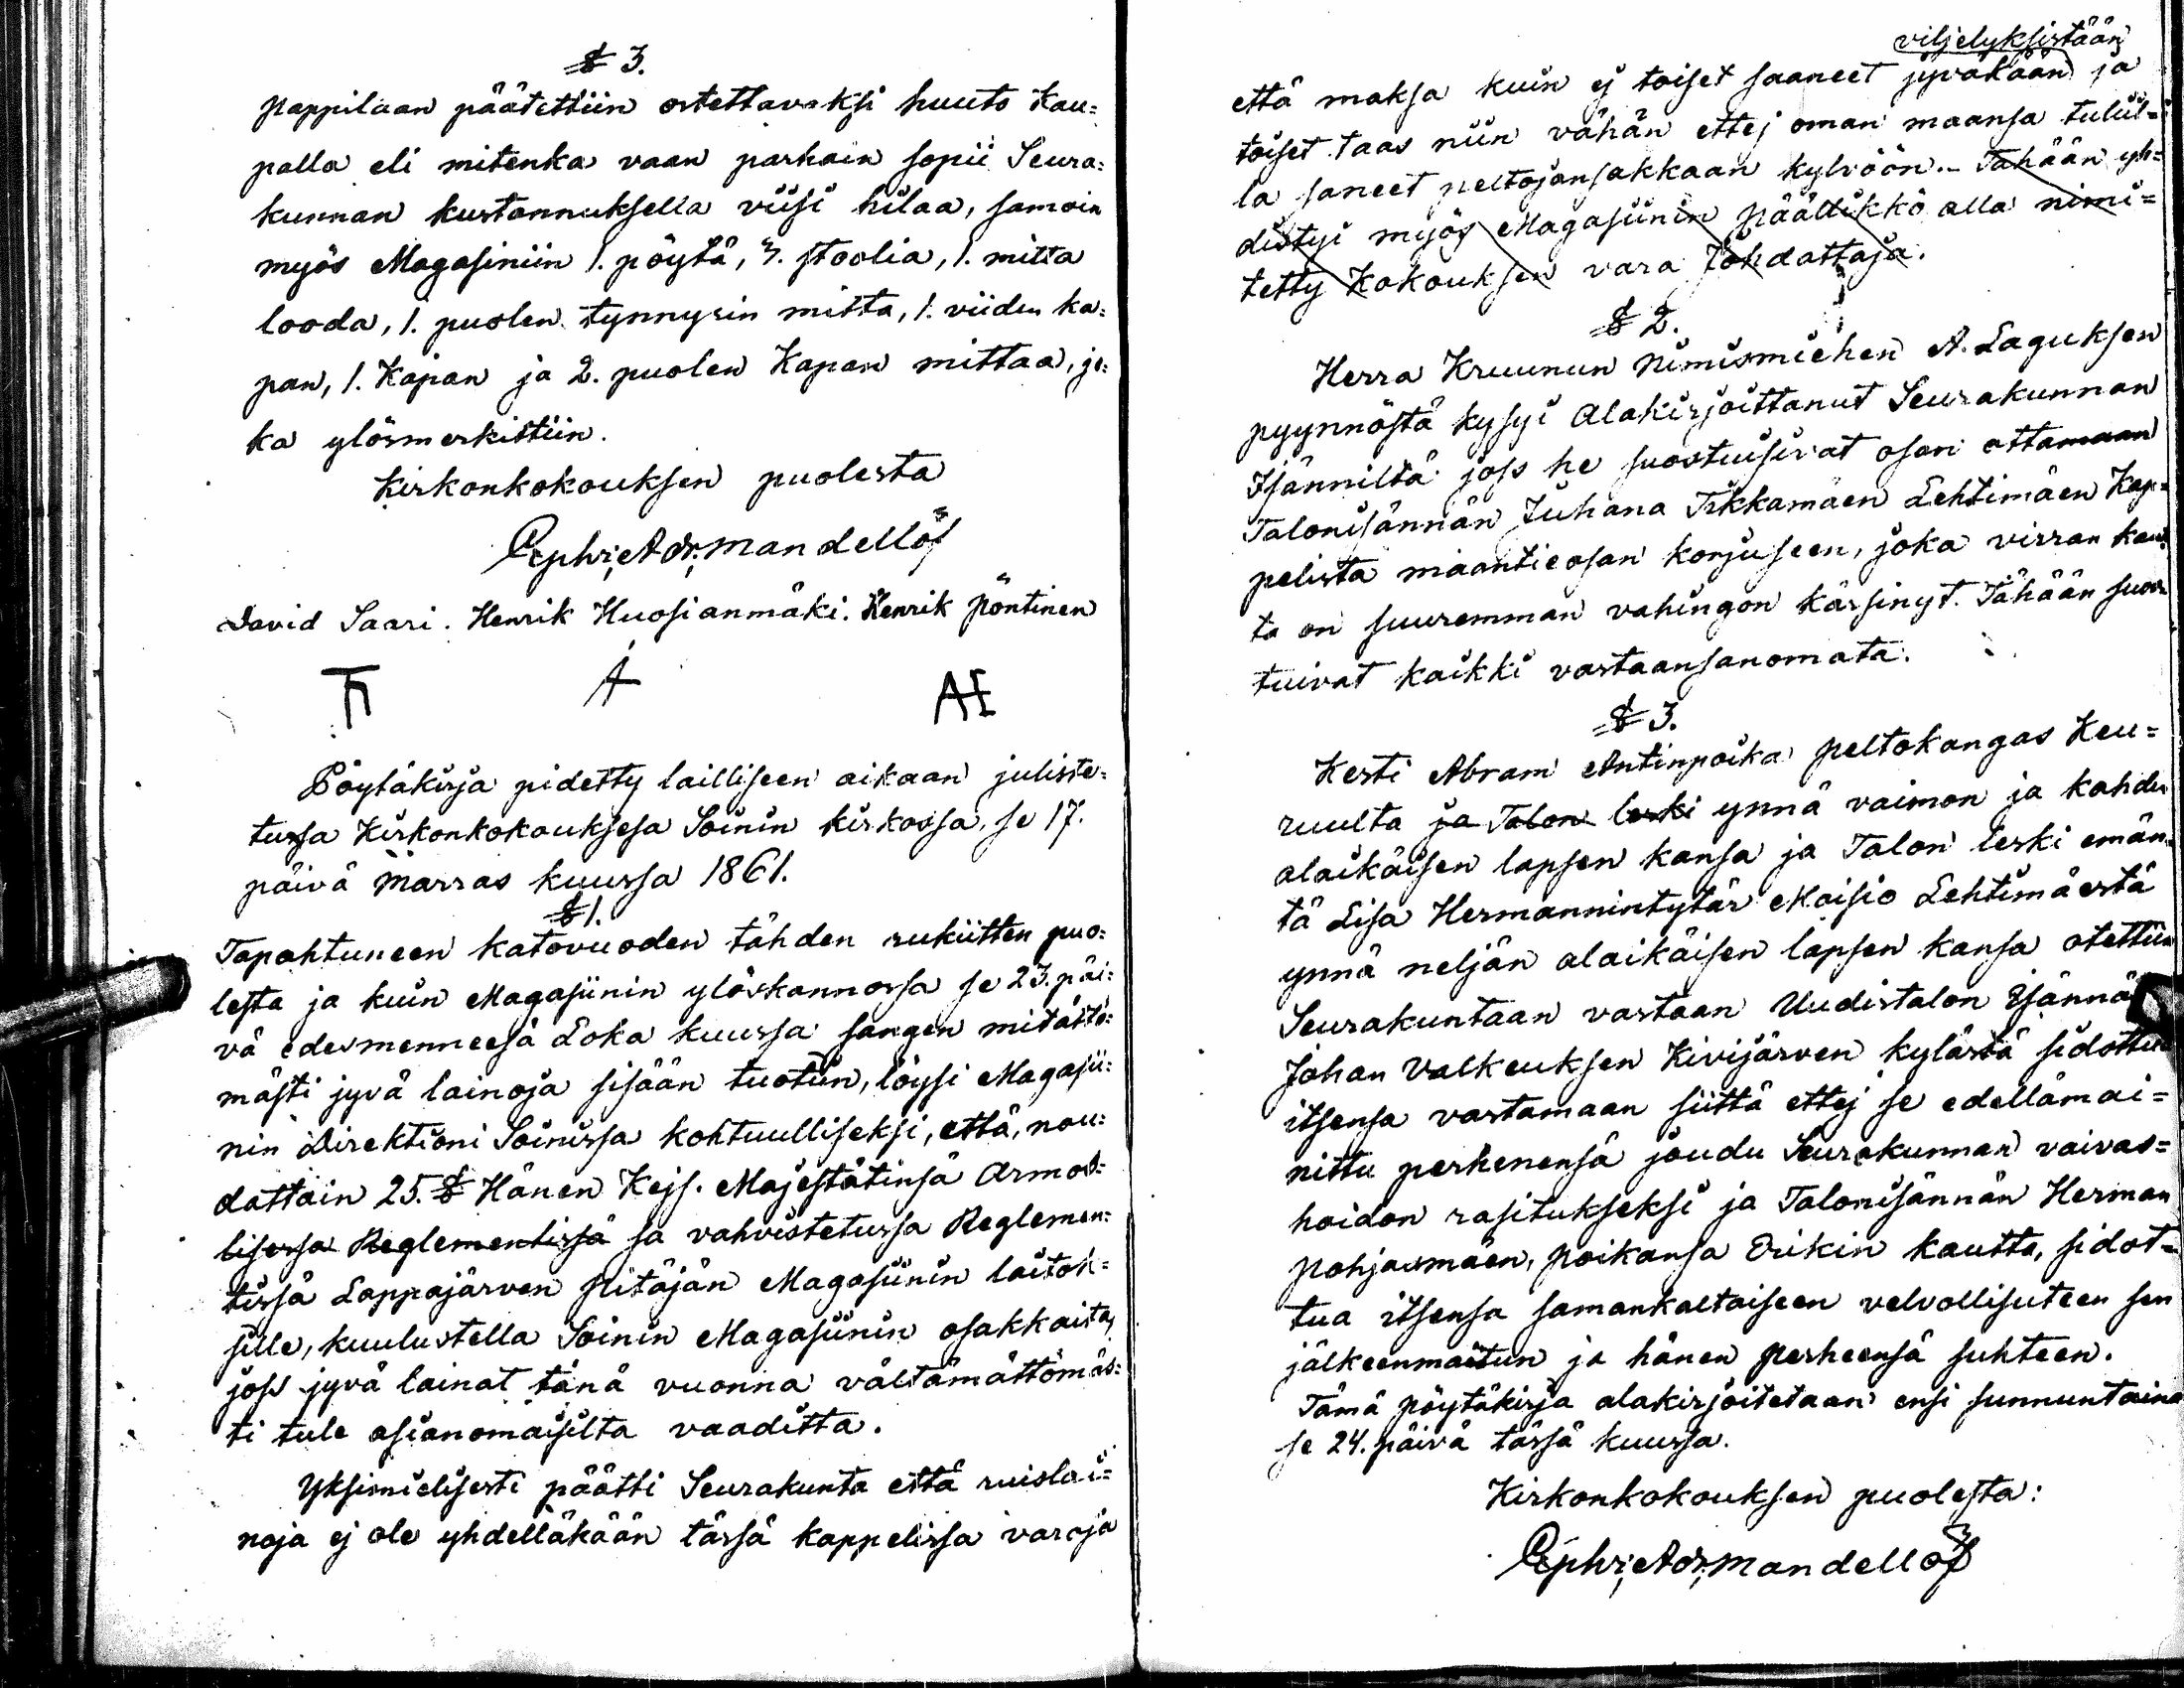 § 3.
pappilaan päätettiin ostettavaksi huuto kau=
palla eli mitenka vaan parhain sopii Seura=
kunnan kustannuksella viisi hilaa, samoin
myös Magasiniin 1. pöytä, 4. stoolia, 1. mitta
looda, 1. puolen tynnyrin mitta, 1. viiden ka=
pan, 1. Kapan ja 2. puolen Kapan mittaa, jo=
ka ylösmerkittiin.
Kirkonkokouksen puolesta
Ephr; Adr; Mandellöf
David Saari. Henrik Huosianmäki. Henrik Pöntinen
Pöytäkirja pidetty lailliseen aikaan juliste=
tussa Kirkonkokouksesa Soinin kirkossa, se 17.
päivä Marras kuussa 1861.
§ 1.
Tapahtuneen katovuoden tähden rukiitten puo=
lesta ja kuin Magasiinin ylöskannossa se 23. päi=
vä edesmenneesä Loka kuussa sangen mitättö=
mästi jyvä lainoja sisään tuotiin, löysi Magasii=
nin Direktioni Soinissa kohtuulliseksi, että, nou=
dattain 25. § Hänen Kejs. Majestätinsä Armol=
lisessa Reglementissä ja vahvistetussa Reglemen=
tissä Lappajärven pitäjän Magasiinin laitok=
sille, kuulustella Soinin Magasiinin osakkaita,
joss jyvä lainat tänä vuonna välttämättömäs=
ti tule asianomaisilta vaaditta.
Yksimielisesti päätti Seurakunta että ruislai=
noja ej ole yhdelläkään tässä kappelissa varoja
viljelyksistään
että maksa kuin ej toiset saaneet jyvakään ja
toiset taas niin vähän ettej oman maansa tulul=
la saneet peltojansakkaan kylvöön.- Tähään yh=
distyi myös Magasiinin päällikkö alla nimi=
tetty Kokouksen vara Johdattaja.
§ 2.
Herra Kruunun Nimismiehen A. Laguksen
pyynnöstä kysyi Alakirjoittanut Seurakunnan
Isänniltä joss he suostuisivat osan ottamaan
Talonisännän Juhana Tikkamäen Lehtimäen Kap=
pelista maantieosan korjuseen, joka virran kaut
ta on suuremman vahingon kärsinyt. Tähään suos
tuivat kaikki vastaansanomata.
§ 3.
Kesti Abram Antinpoika Peltokangas Keu=
ruulta ja Talon leski ynnä vaimon ja kahden
alaikäisen lapsen kansa ja Talon leski emän
tä Lisa Hermannintytär Maisio Lehtimäestä
ynnä neljän alaikäisen lapsen kansa otettiin
Seurakuntaan vastaan Uudistalon Isännä
Johan Valkeuksen Kivijärven kylästä sidottua
itsensa vastamaan siittä ettej se edellämai=
nittu perhenensä joudu Seurakunnan vaivas=
hoidon rasitukseksi ja Talonisännän Herman
Pohjasmäen, poikansa Erikin kautta, sidot=
tua itsensa samankaltaiseen velvollisuteen sen
jälkeenmaitun ja hänen perheensä suhteen.
Tämä pöytäkirja alakirjoitetaan ensi sunnuntaina
se 24. päivä tässä kuussa.
Kirkonkokouksen puolesta:
Ephr; Adr; Mandellöf